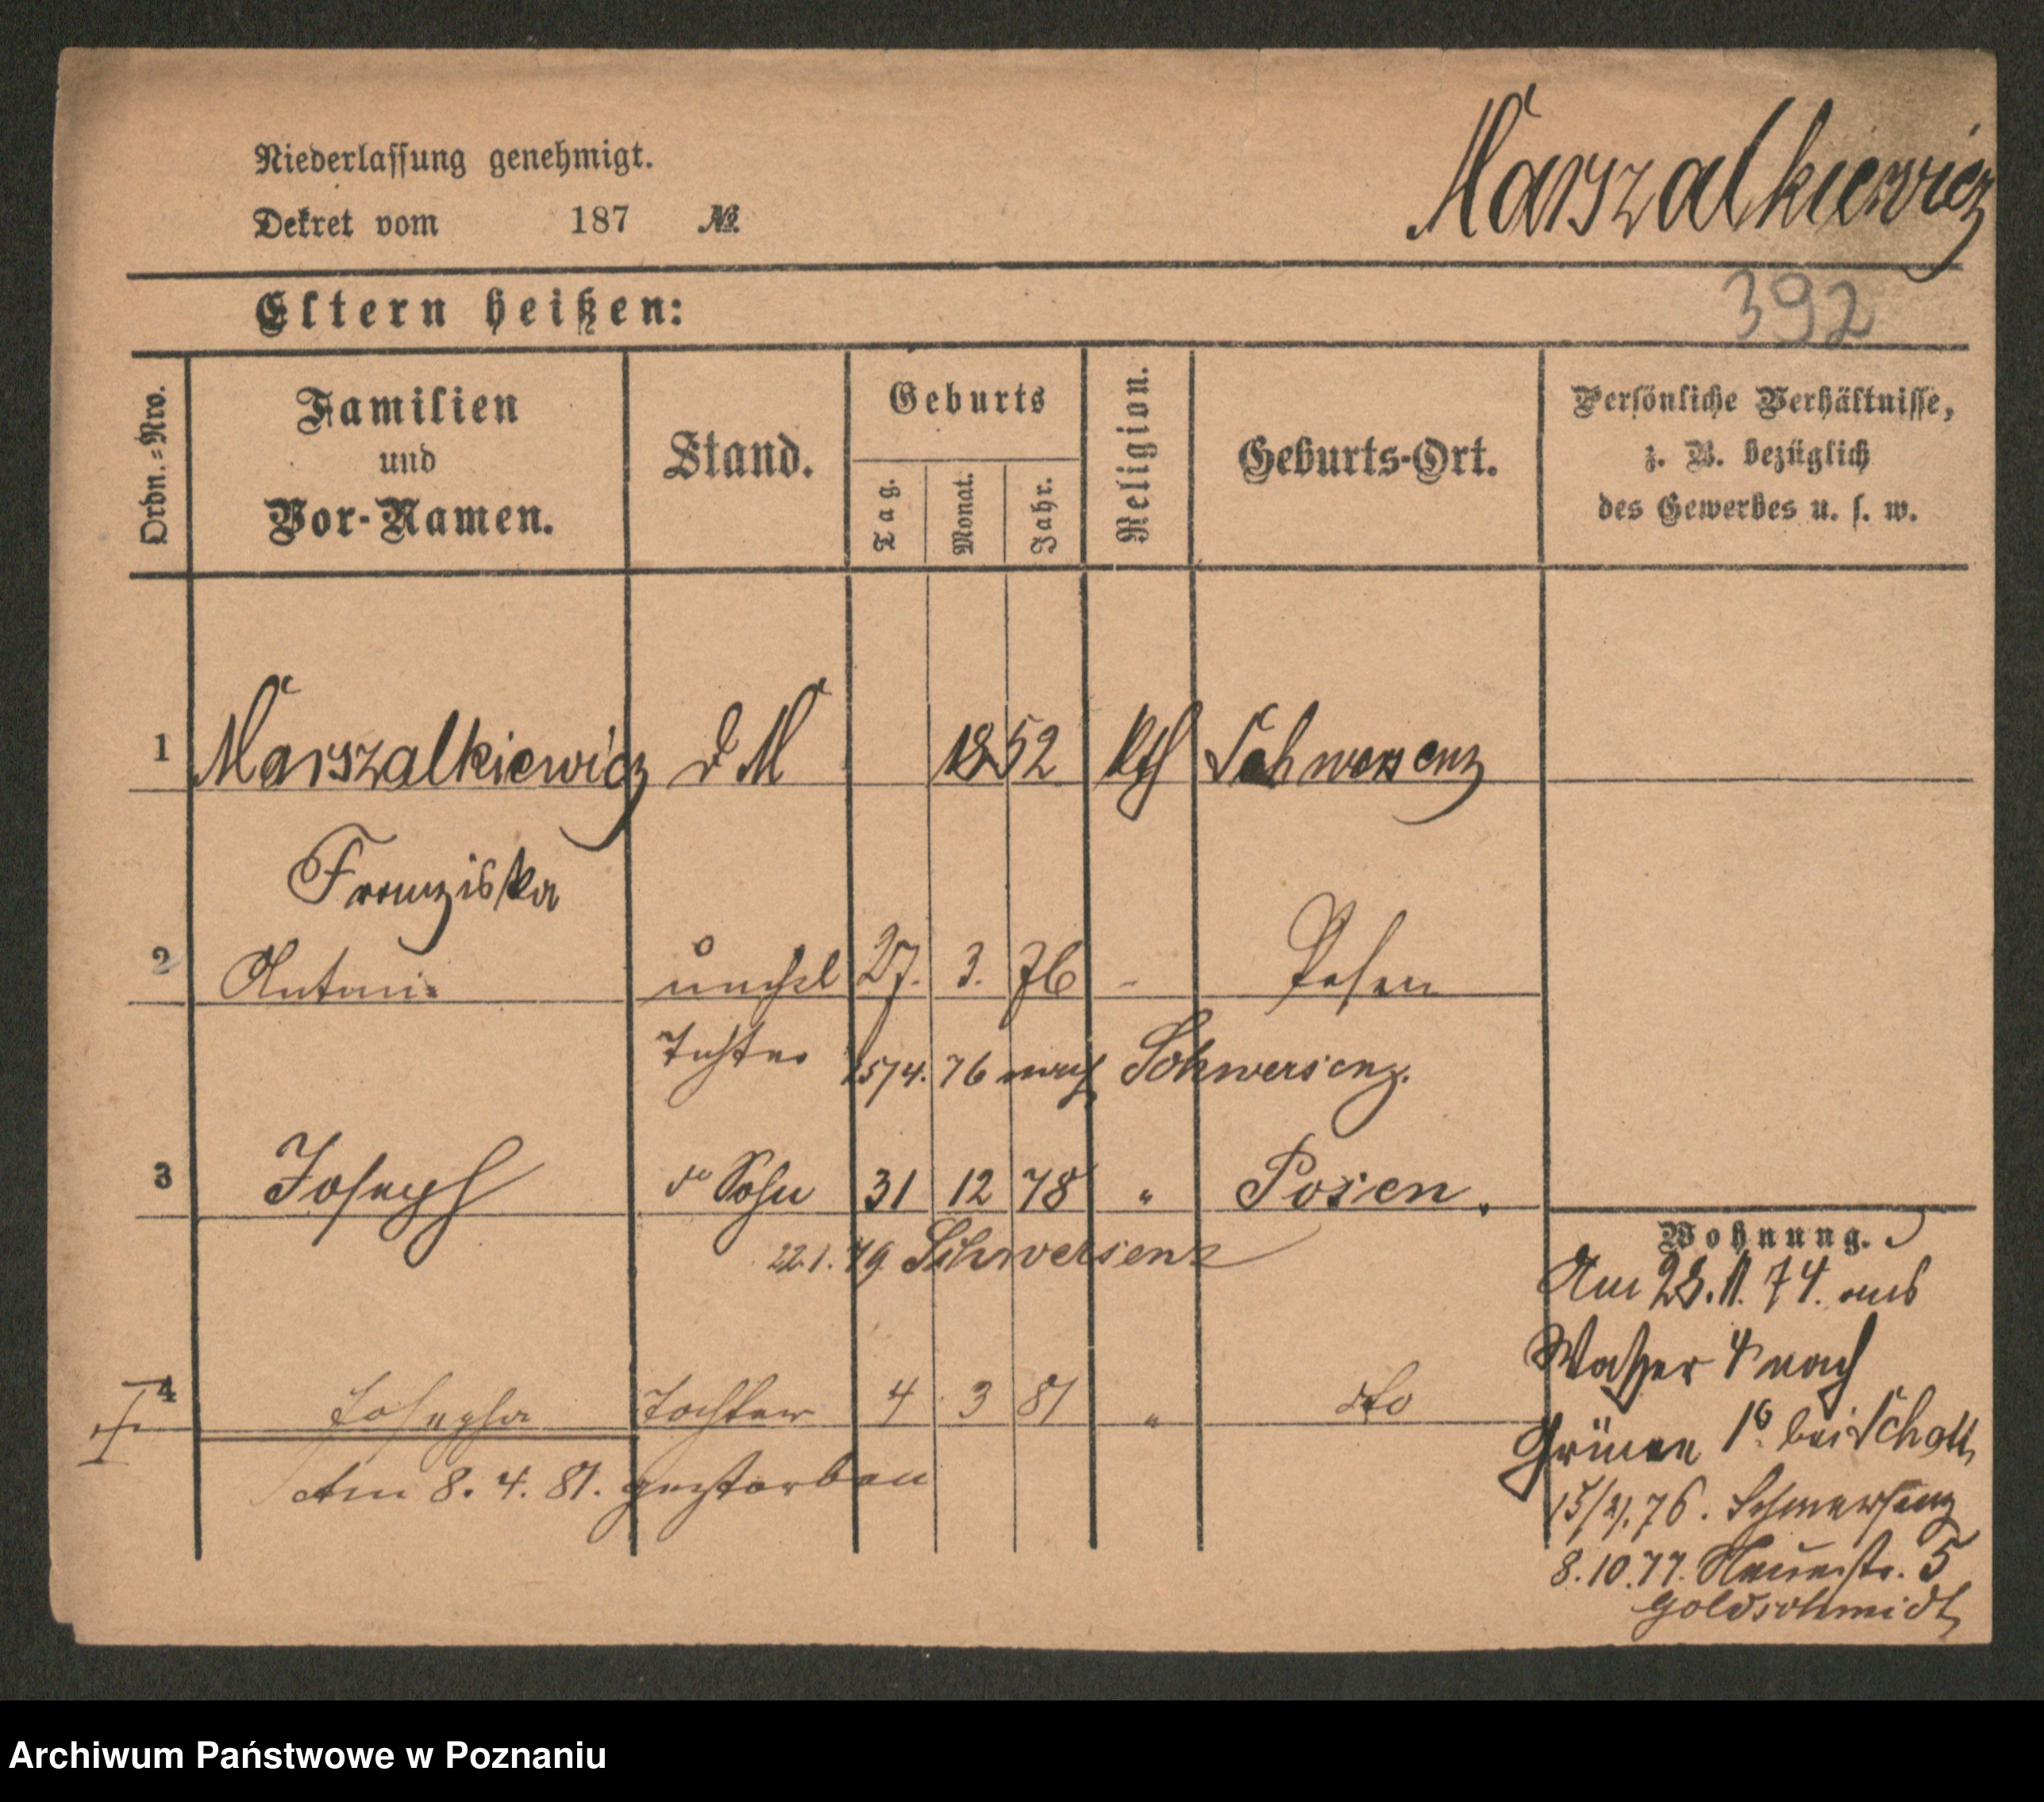 Niederlassung genehmigt.
Dekret vom 187 №
Marszalkiewicz
Eltern heißen:
392
Ordn.=Nro.
Familien
und
Vor-Namen.
Stand.
Geburts
Tag.
Monat.
Jahr.
Religion.
Geburts-Ort.
Persönliche Verhältnisse,
z. B. bezüglich
des Gewerbes u. s. w.
1 Marszalkiewicz d M 1852 kth Schwersenz
Franziska
2 27. 3. 76 - Posen
Tochter 15/4. 76 nach Schwersenz.
3 Joseph Sohn 31 12 78 " Posen.
22.1.79 Schwersenz
4 Josepha Tochter 4 3 81 " dto
Am 8. 4. 81. gestorben
Wohnung.
Am 28.11.74. aus
Waßer 4 nach
Grünen bei
76. Schwersenz
8.10.77. 5
Goldschmidt
Archiwum Państwowe w Poznaniu